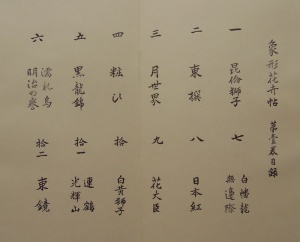 象形花卉帖 第壹表目録
一 昆侖獅子
二 東撰
三 月世界
四 粧ひ
五 黒龍錦
六 濡れ烏
明治の誉
七 白幡龍
無邊際
八 日本紅
九 花大臣
拾 白黄獅子
拾一 連鶴
光輝山
拾二 東鏡